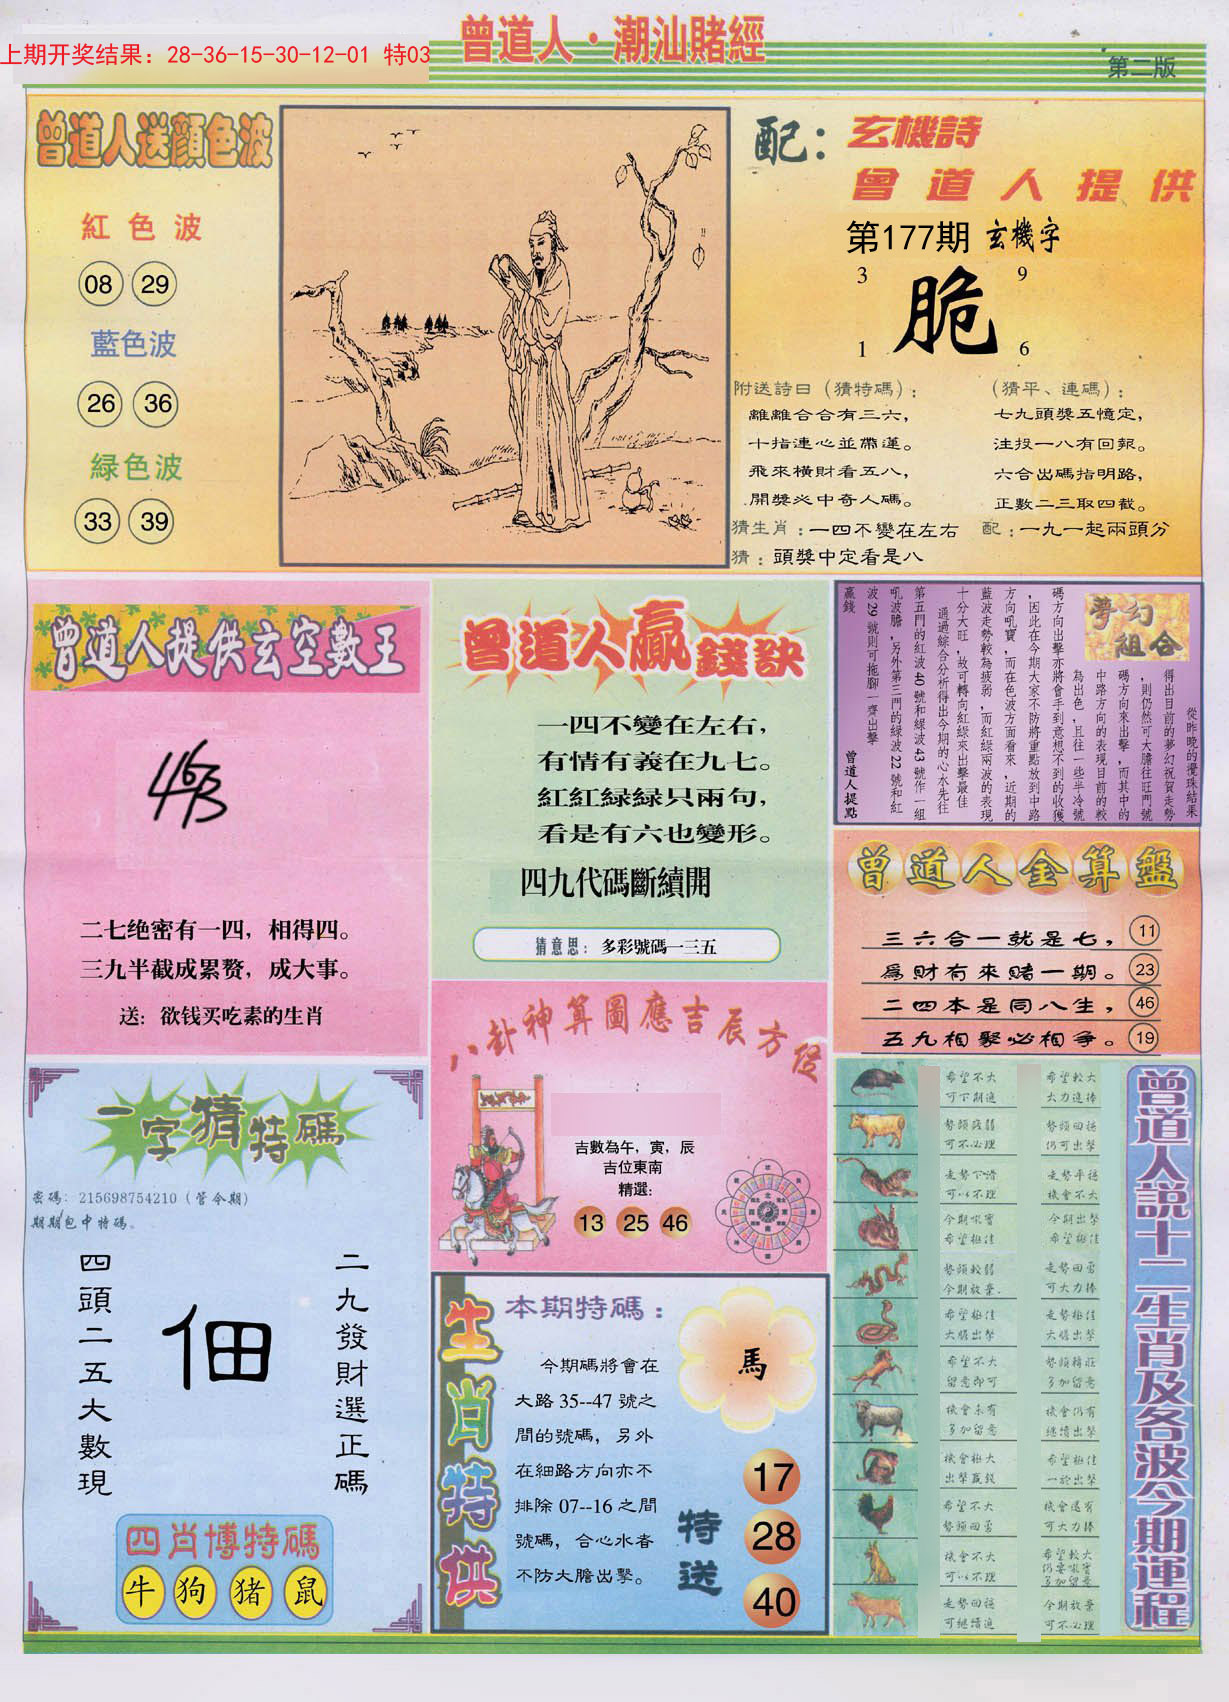 上期开奖结果：28-36-15-30-12-01 特03
曾道人·潮汕賭經
第二版
曾道人送顔色波
紅色波
08 29
藍色波
26 36
緑色波
33 39
配：玄機詩
曾道人提供
第177期 玄機字
3 9
脆
1 6
附送詩曰（猜特碼）：
離離合合有三六，
十指連心並帶運。
飛來橫財看五八，
開獎必中奇人碼。
（猜平、連碼）：
七九頭獎五憶定，
注投一八有回報。
六合出碼指明路，
正數二三取四截。
猜生肖：一四不變在左右
配：一九一起兩頭分
猜：頭獎中定看是八
曾道人提供玄空數王
463
二七绝密有一四，相得四。
三九半截成累赘，成大事。
送：欲钱买吃素的生肖
曾道人贏錢訣
一四不變在左右，
有情有義在九七。
紅紅緑緑只兩句，
看是有六也變形。
四九代碼斷續開
猜意思：多彩號碼一三五
夢幻組合
從昨晚的攪珠結果
得出目前的夢幻祝賀走勢
，則仍然可大膽往旺門號
碼方向來出擊，而其中的
中路方向的表現目前的較
為出色，且往一些半冷號
碼方向出擊亦將會手到意想不到的收獲
，因此在今期大家不防將重點放到中路
方向吼寶，而在色波方面看來，近期的
藍波走勢較為疲弱，而紅緑兩波的表現
十分大旺，故可轉向紅緑來出擊最佳
通過綜合分析得出今期的心水先往
第五門的紅波40號和緑波43號作一組
吼波膽，另外第三門的緑波22號和紅
波29號則可拖腳一齊出擊
贏錢
曾道人提點
曾道人金算盤
三六合一就是七， 11
爲財有來賭一期。 23
二四本是同八生， 46
五九相聚必相争。 19
八卦神算圖應吉辰方位
吉數為午，寅，辰
吉位東南
精選：
13 25 46
一字猜特碼
密碼：215698754210（管令期）
期期包中特碼。
四頭二五大數現
佃
二九發財選正碼
四肖博特碼
牛 狗 猪 鼠
生肖特供
本期特碼：
馬
今期碼將會在
大路35--47號之
間的號碼，另外
在細路方向亦不
排除07--16之間
號碼，合心水者
不防大膽出擊。
特送
17
28
40
曾道人説十二生肖及各波今期運程
希望不大
可下期進
希望較大
大力進捧
勢頭疲弱
可不必理
勢頭回穩
仍可出擊
走勢下滑
可以不理
走勢平穩
機會不大
今期吼寶
希望極佳
今期出擊
希望極佳
勢頭較弱
今期放棄.
走勢回勇
可大力捧
希望極佳
大膽出擊
走勢極佳
大膽出擊
希望不大
留意即可
勢頭轉旺
多加留意
機會未有
多加留意
機會仍有
繼續出擊
機會極大
出擊贏錢
希望極佳
一於出擊
希望不大
勢頭回勇
機會還有
可大力捧
機會不大
可以不理
希望較大
仍要吼寶
多加留意
走勢回穩
可繼續進
今期放棄
可不必理